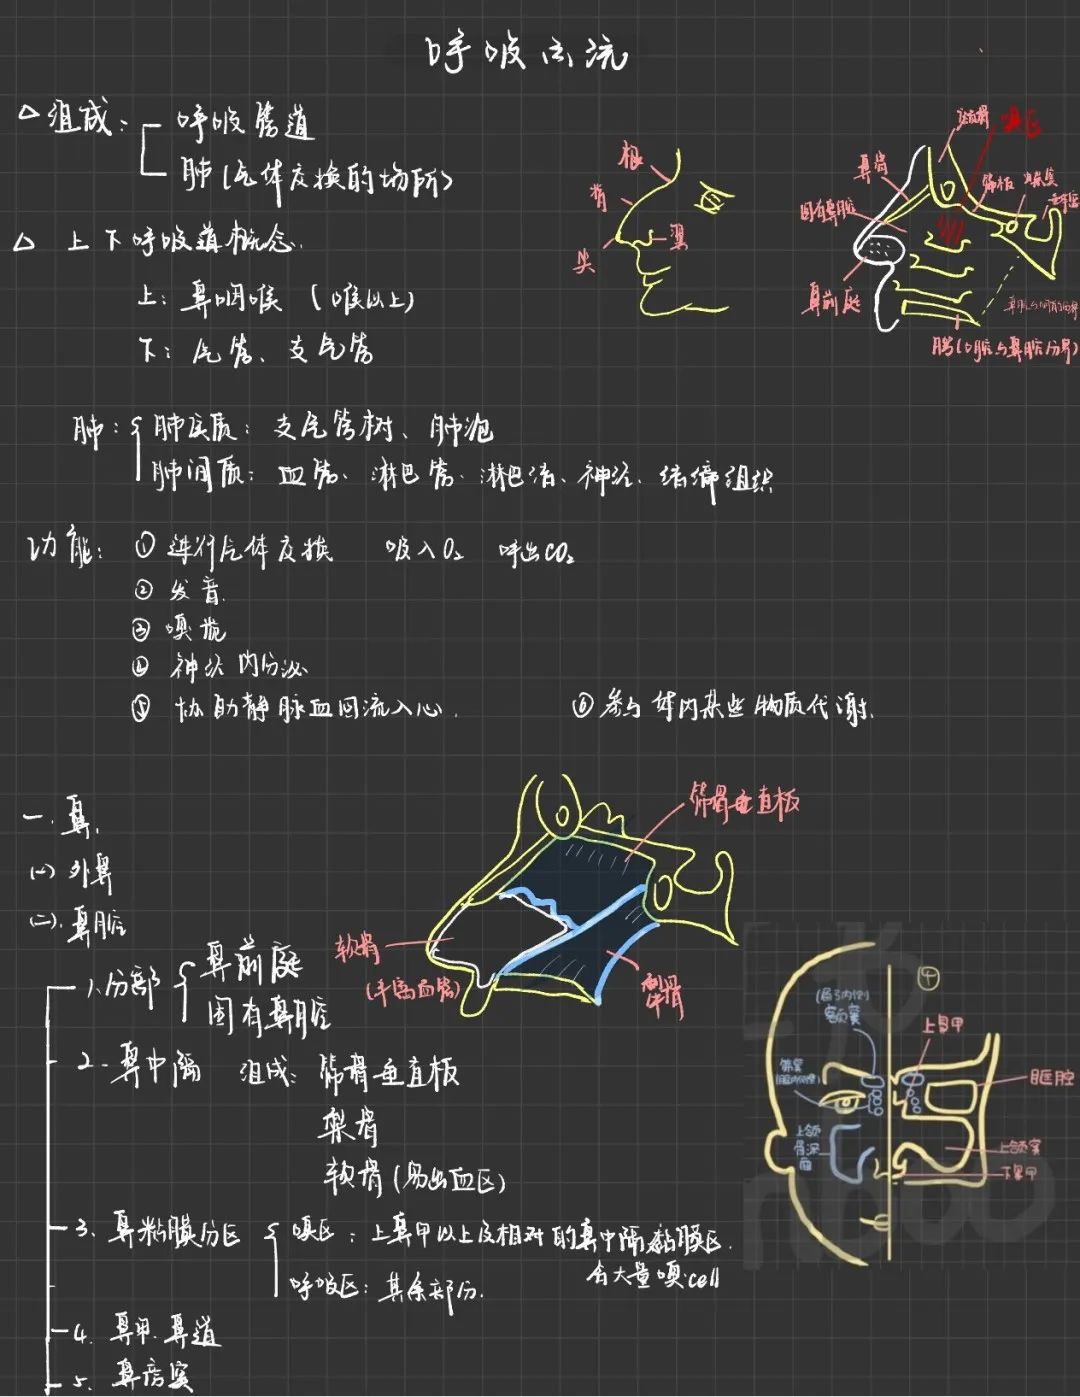 呼吸系统
△组成：呼吸管道
肺（气体交换的场所）
△ 上下呼吸道概念.
上：鼻咽喉（喉以上）
下：气管、支气管
肺：肺实质：支气管树、肺泡
肺间质：血管、淋巴管、淋巴结、神经、结缔组织
功能：①进行气体交换 吸入O₂ 呼出CO₂
②发音.
③嗅觉
④神经内分泌
⑤协助静脉血回流入心.
⑥参与体内某些物质代谢.
根
背
尖
翼
嗅区
鼻骨
筛板
固有鼻腔
鼻前庭
腭（口腔与鼻腔分界）
一.鼻.
(一)外鼻
(二).鼻腔
1.分部 鼻前庭
固有鼻腔
2.鼻中隔 组成：筛骨垂直板
犁骨
软骨（易出血区）
3.鼻粘膜分区 嗅区：上鼻甲以上及相对的鼻中隔黏膜区.
含大量嗅cell
呼吸区：其余部分.
4.鼻甲.鼻道
5.鼻旁窦
筛骨垂直板
软骨
犁骨
上鼻甲
眶腔
上颌窦
下鼻甲
额窦
筛窦
上颌骨深面